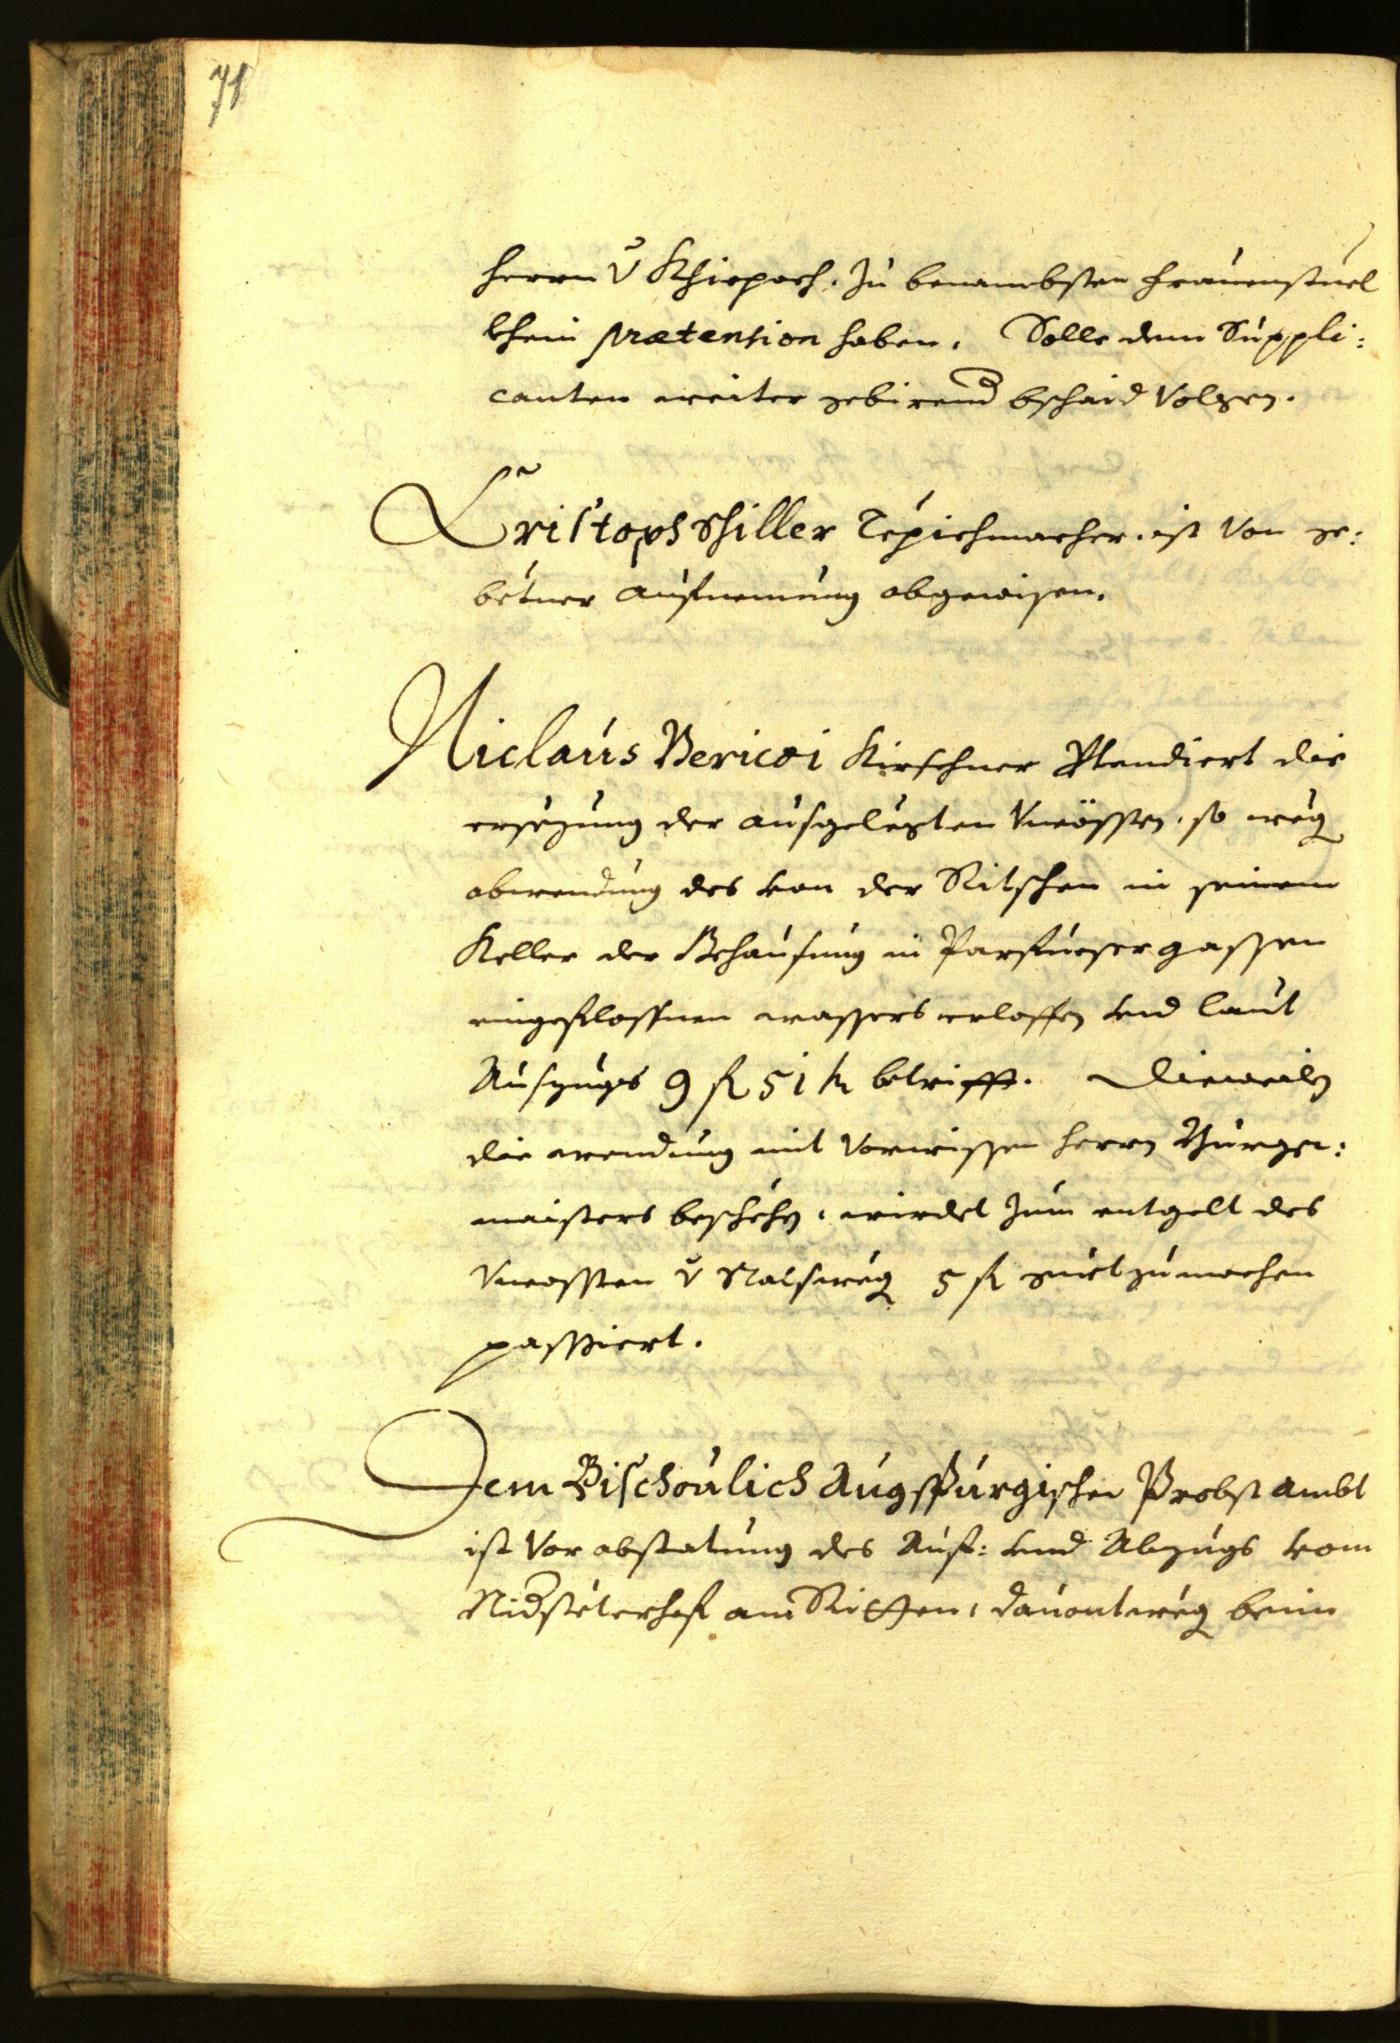 71
herrn v Khiepach. Zu benambsten Frauenstuel
khein praetention haben. Solle dem Suppli:
canten weiter gebirend bschaid Volgen.
Cristoph Schiller Tepichmacher. ist Von ge:
betner aufnemung abgewisen.
Niclaus Bericoi Kirschner Plendiert die
ersezung der ausgelegten Uncössten. so weg
abwendung des von der Ritschen in seinem
Keller der Behausung in Parfuesergassen
eingeflossnen wassers erloffen und laut
Auszugs 9 fl 51 kr betrifft. Dieweiln
die wendung mit Vorwissen herrn Burger:
maisters beschehen. wirdet Zum entgelt des
Uncossten v Malsweg 5 fl guetzumachen
passiert.
Dem Bischovlich Augspurgischen Probst Ambt
ist Vor abstatung des Auf: und Abzugs vom
Nidsteterhof am Ritten, dauontweg beim